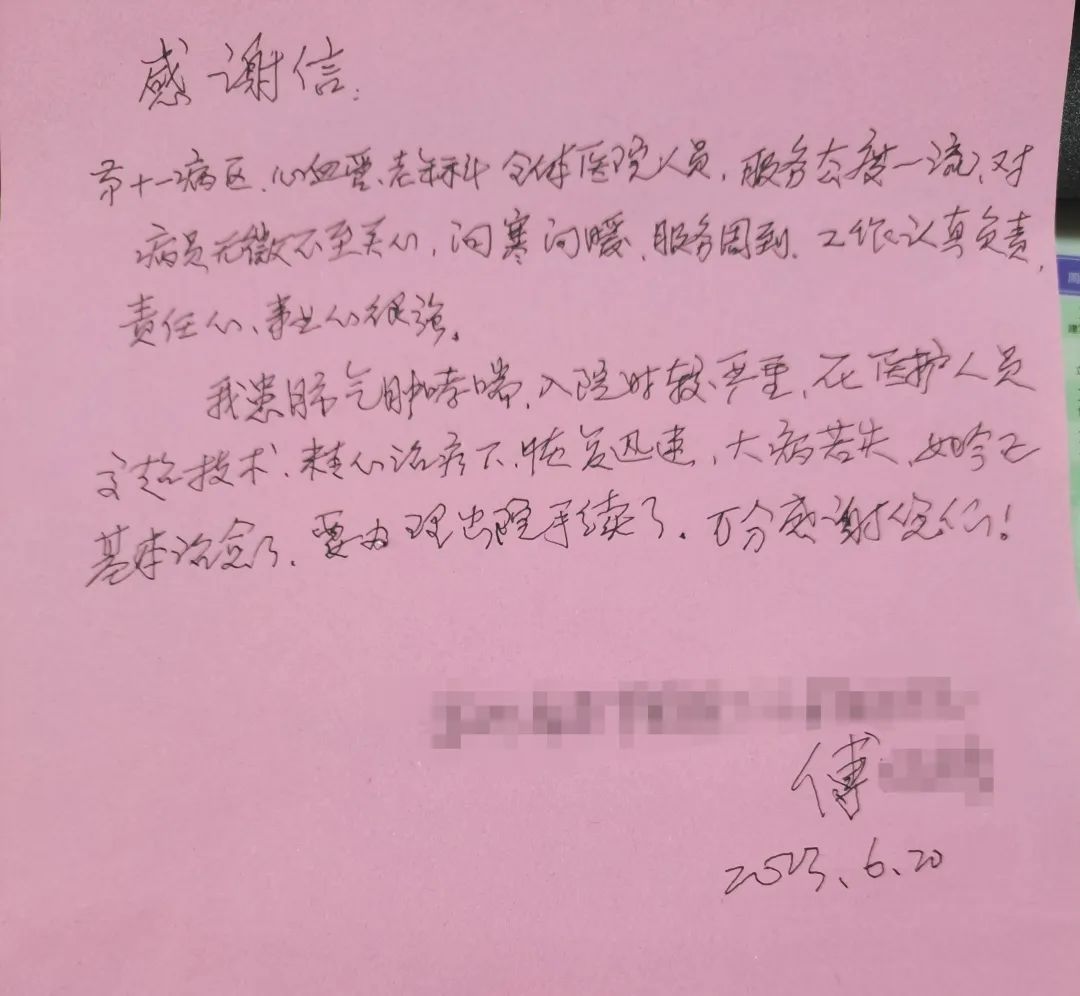 感谢信:
第十一病区、心血管、老年科全体医院人员，服务态度一流、对
病员无微不至关心，问寒问暖、服务周到、工作认真负责，
责任心、事业心很强。
我患肺气肿哮喘，入院时较严重，在医护人员
高超技术、精心治疗下，恢复迅速，大病若失，如今已
基本治愈了，要办理出院手续了。万分感谢您们！
傅
2023、6、20